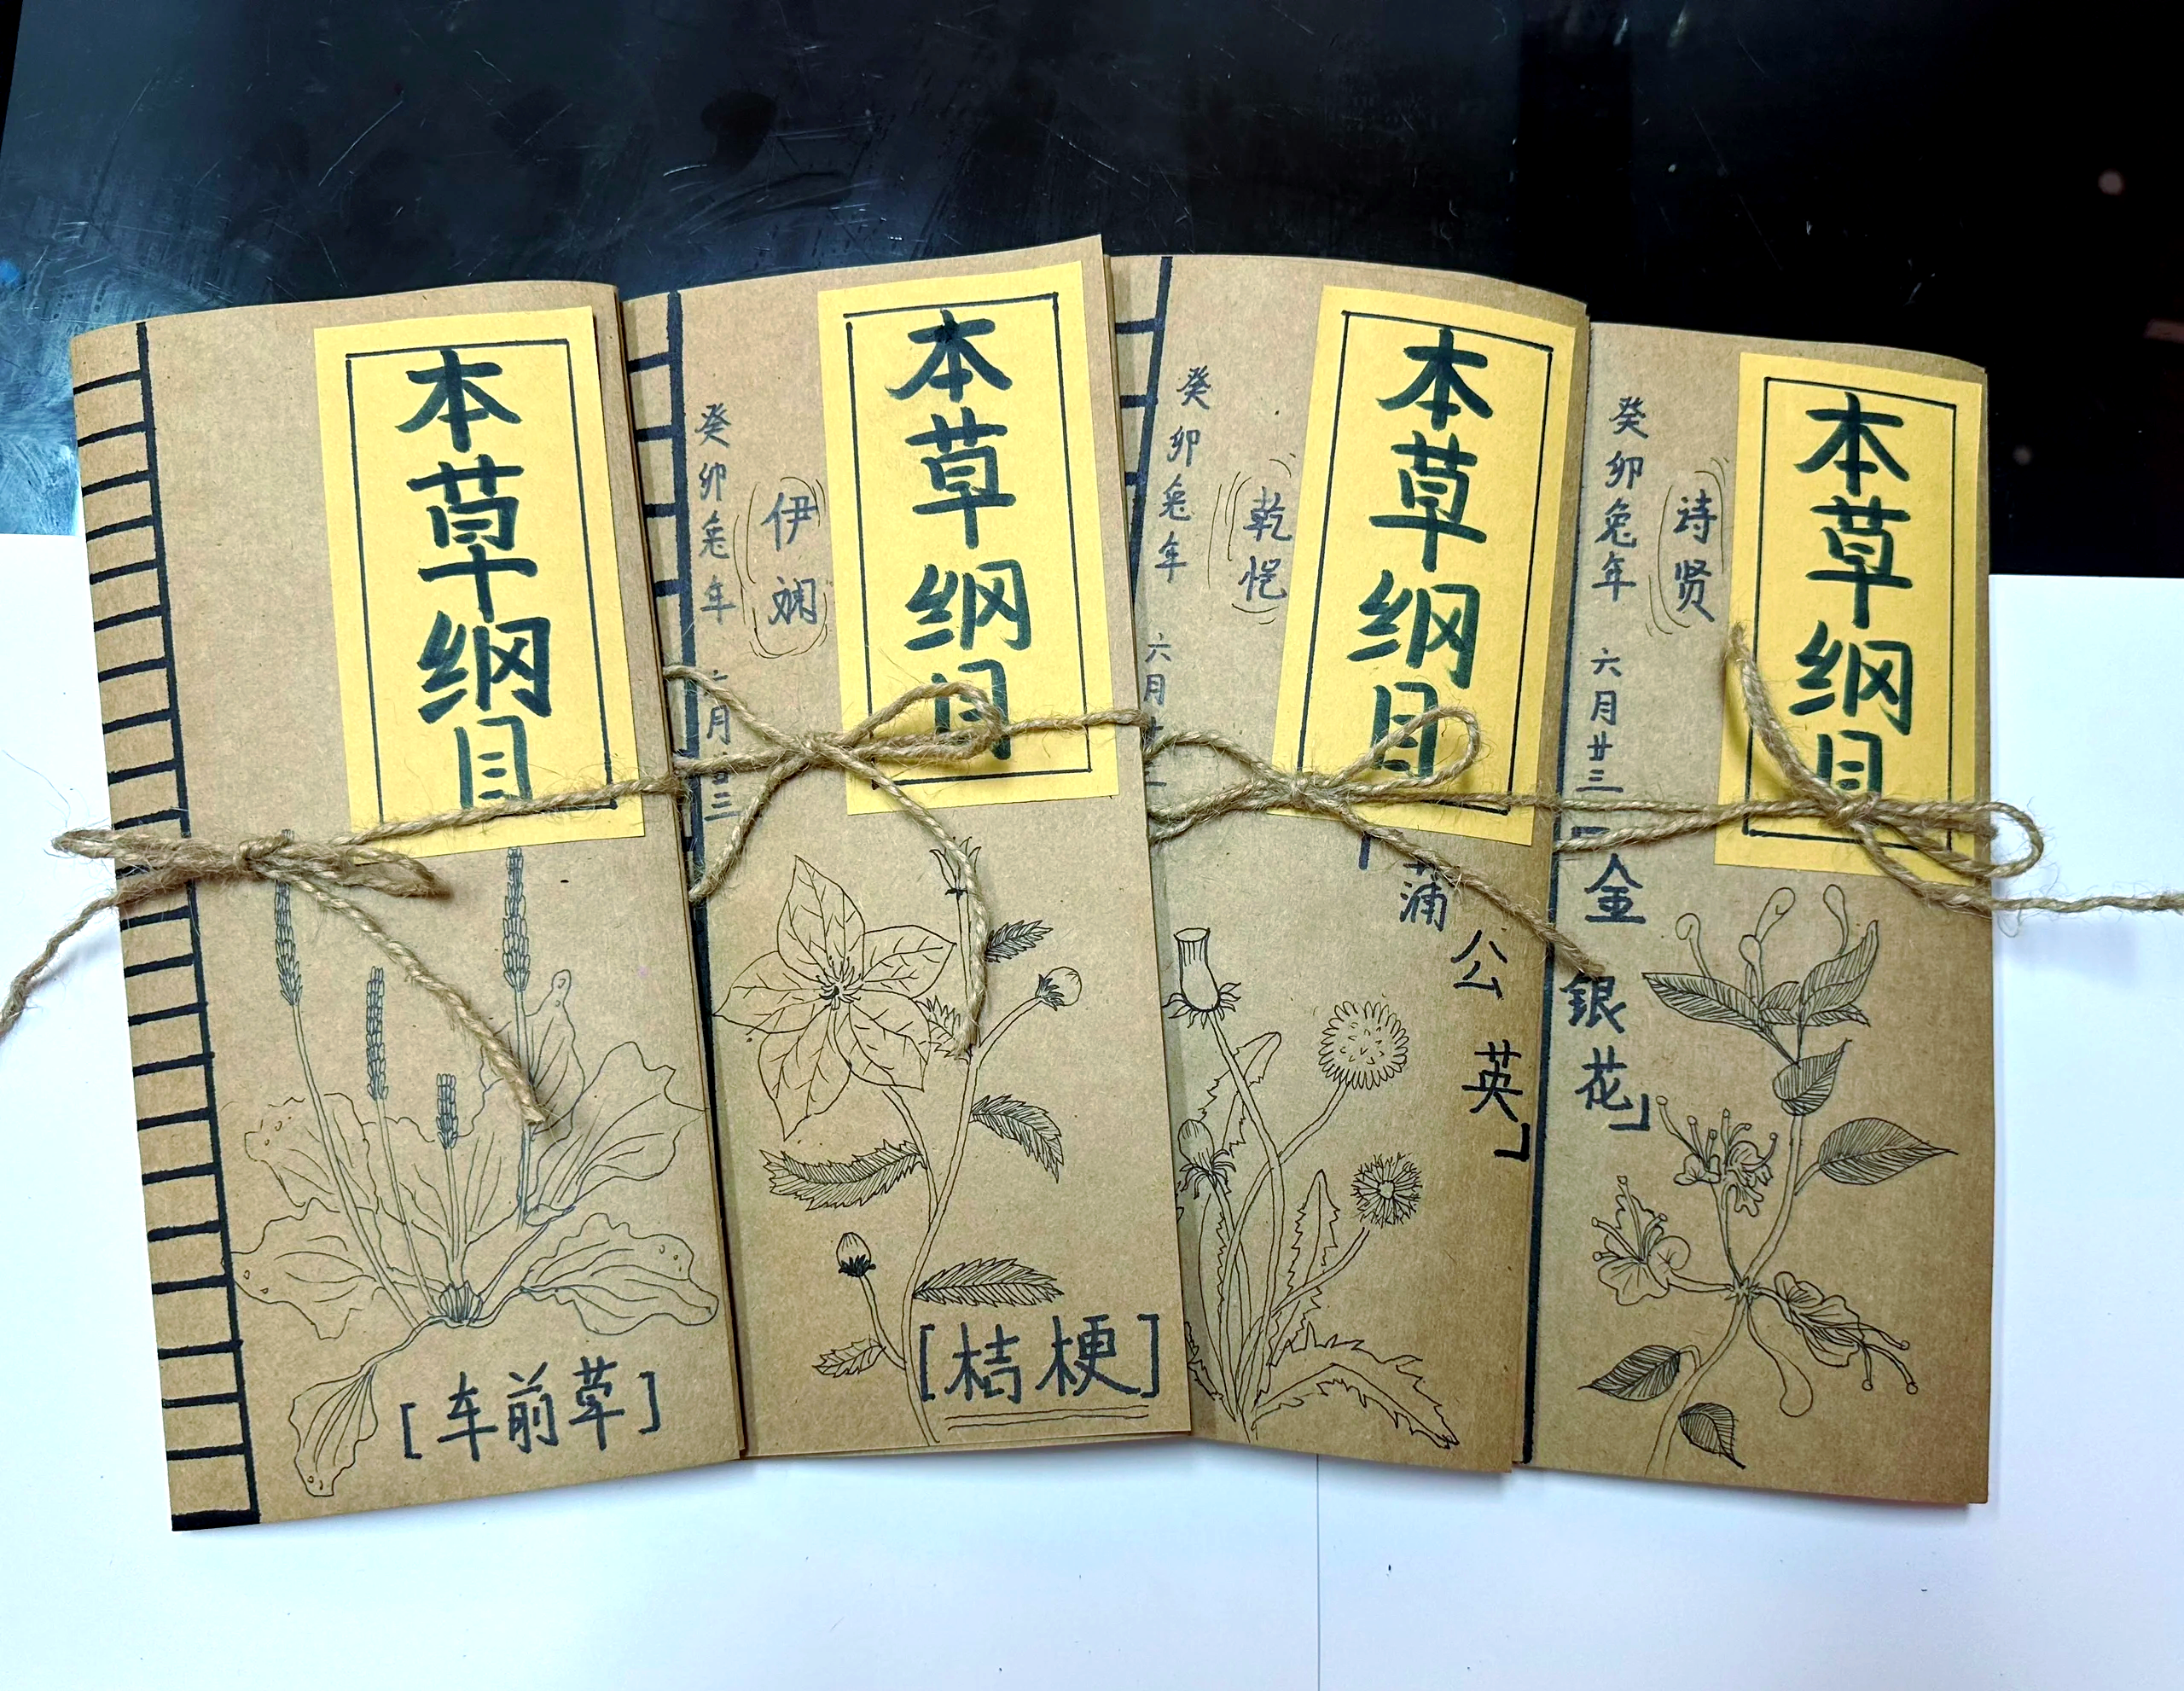 本草纲目
[车前草]
本草纲目
伊娴
癸卯兔年 六月廿三
[桔梗]
本草纲目
乾恺
癸卯兔年 六月廿三
「蒲公英」
本草纲目
诗贤
癸卯兔年 六月廿三
「金银花」